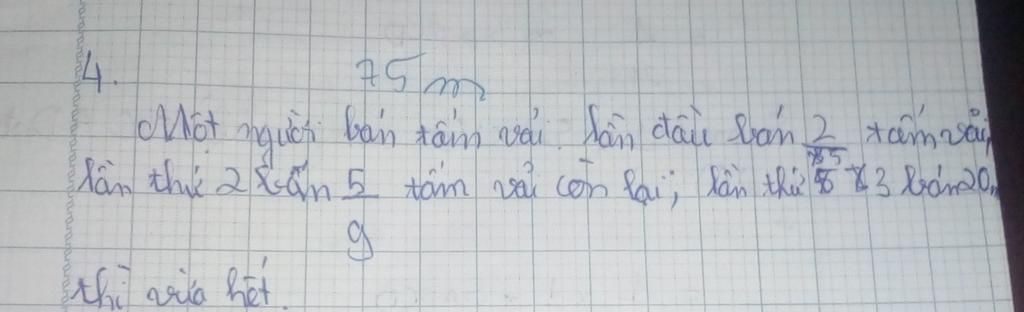 4. 75 m
Một người bán tấm vải. Lần đầu bán 2/5 tấm vải,
lần thứ 2 bán 5/9 tấm vải còn lại; lần thứ 3 bán 20m
thì vừa hết.